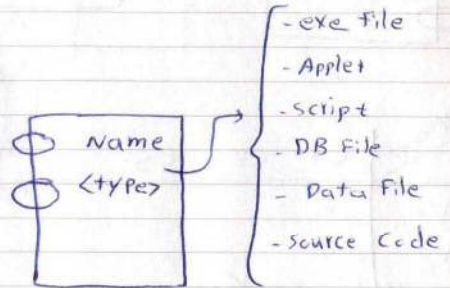 Name
<type>
- exe file
- Applet
- script
- DB File
- Data File
- Source Code